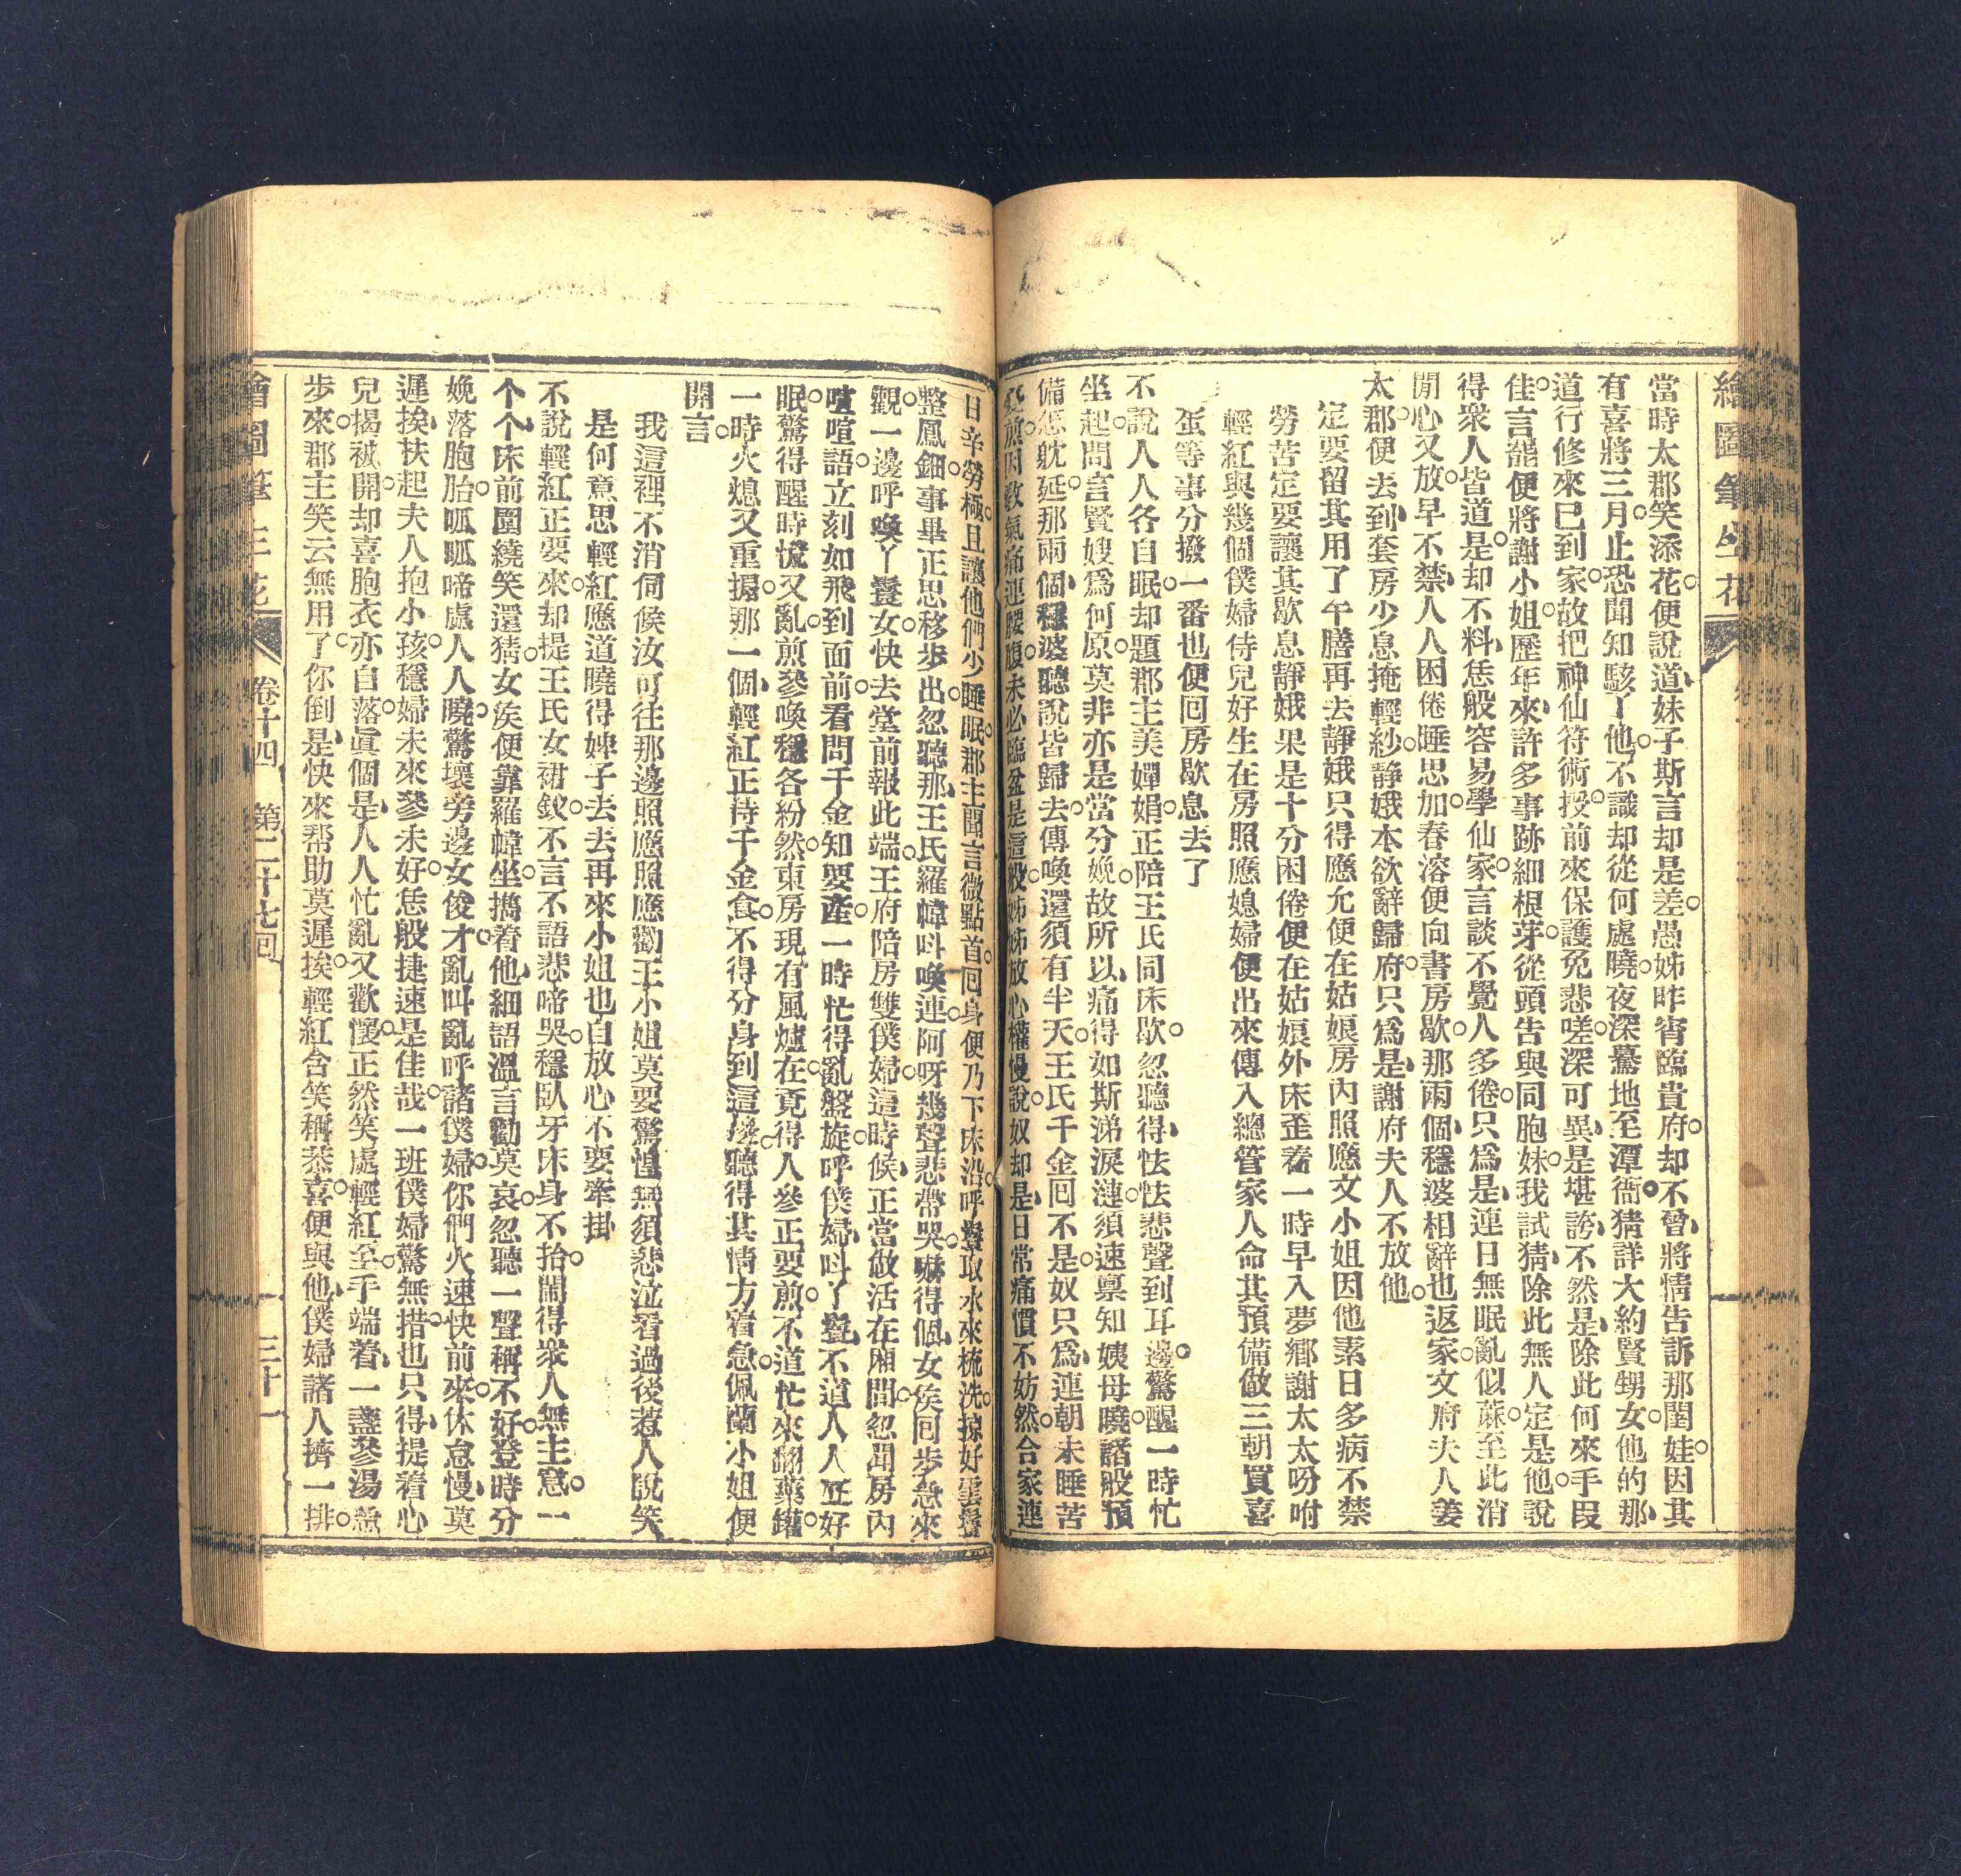 繪圖筆生花
當時太郡笑添花便說道妹子斯言却是差愚姊昨宵臨貴府却不曾將情告訴那閨娃因其
有喜將三月止恐聞知駭了他不識却從何處曉夜深驀地至潭衙猜詳大約賢甥女他的那
道行修來已到家故把神仙符術授前來保護免悲嗟深可異是堪誇不然是除此何來手段
佳言罷便將謝小姐歷年來許多事跡細根芽從頭告與同胞妹我試猜除此無人定是他說
得衆人皆道是却不料恁般容易學仙家言談不覺人多倦只爲是連日無眠亂似蔴至此消
閒心又放早不禁人人困倦睡思加春溶便向書房歇那兩個穩婆相辭也返家文府夫人姜
太郡便去到套房少息掩輕紗靜娥本欲辭歸府只爲是謝府夫人不放他
定要留其用了午膳再去靜娥只得應允便在姑娘房內照應文小姐因他素日多病不禁
勞苦定要讓其歇息靜娥果是十分困倦便在姑娘外床歪着一時早入夢鄉謝太太吩咐
輕紅與幾個僕婦侍兒好生在房照應媳婦便出來傳入總管家人命其預備做三朝買喜
蛋等事分撥一番也便回房歇息去了
不說人人各自眠却題郡主美嬋娟正陪王氏同床歇忽聽得怯怯悲聲到耳邊驚醒一時忙
坐起問言賢嫂爲何原莫非亦是當分娩故所以痛得如斯涕淚漣須速禀知姨母曉諸般預
備怎躭延那兩個穩婆聽說皆歸去傳喚還須有半天王氏千金回不是奴只爲連朝未睡苦
氣痛連腰腹未必臨盆是這般姊姊放心權慢說奴却是日常痛慣不妨然合家連
日辛勞極且讓他們少睡眠郡主聞言微點首回身便乃下床沿呼鬟取水來梳洗掠好雲鬟
整鳳鈿事畢正思移步出忽聽那王氏羅幃呌喚連阿呀幾聲悲帶哭嚇得個女侯回步急來
觀一邊呼喚丫鬟女快去堂前報此端王府陪房雙僕婦這時候正當做活在廂間忽聞房內
喧喧語立刻如飛到面前看問千金知要產一時忙得亂盤旋呼僕婦呌丫鬟不道人人正好
眠驚得醒時慌又亂煎參喚穩各紛然東房現有風爐在竟得人參正要煎不道忙來翻藥罐
一時火熄又重搧那一個輕紅正侍千金食不得分身到這邊聽得其情方着急佩蘭小姐便
開言
我這裡不消伺候汝可往那邊照應照應勸王小姐莫要驚惶無須悲泣看過後惹人說笑
是何意思輕紅應道曉得婢子去去再來小姐也自放心不要牽掛
不說輕紅正要來却提王氏女裙釵不言不語悲啼哭穩臥牙床身不抬鬧得衆人無主意一
个个床前圍繞笑還猜女侯便靠羅幃坐搗着他細語溫言勸莫哀忽聽一聲稱不好登時分
娩落胞胎呱呱啼處人人曉驚壞旁邊女俊才亂呌亂呼諸僕婦你們火速快前來休怠慢莫
遲挨扶起夫人抱小孩穩婦未來參未好恁般捷速是佳哉一班僕婦驚無措也只得提着心
兒揭被開却喜胞衣亦自落眞個是人人忙亂又歡懷正然笑處輕紅至手端着一盞參湯急
步來郡主笑云無用了你倒是快來帮助莫遲挨輕紅含笑稱恭喜便與他僕婦諸人擠一排
繪圖筆生花 卷十四 第二十七回 三十一